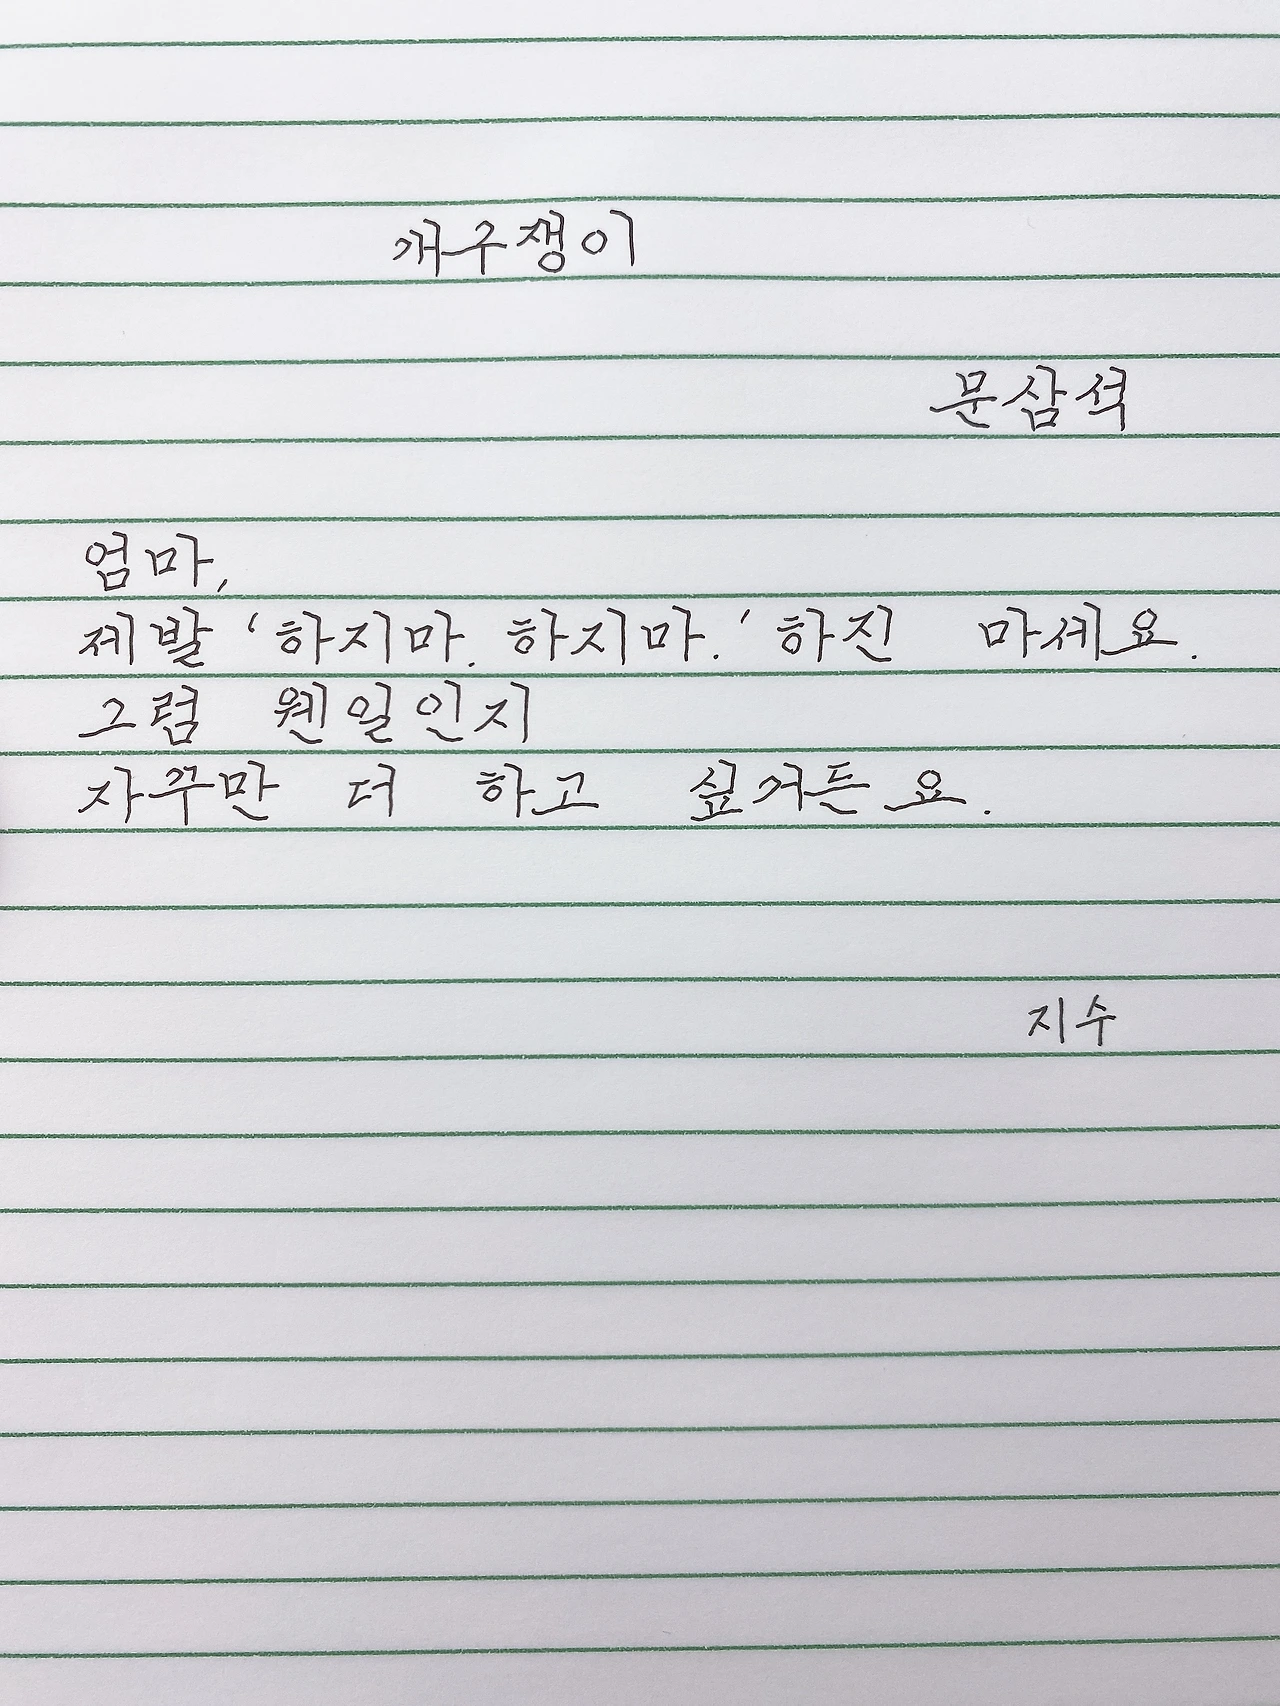 개구쟁이
문삼석
엄마,
제발 '하지마. 하지마.' 하진 마세요.
그럼 웬일인지
자꾸만 더 하고 싶거든요.
지수